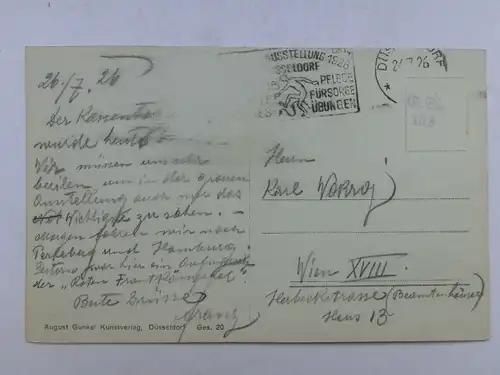 26./7. 26
Der Rasentag
wurde heute
Wir müssen uns sehr
beeilen um in der grossen
Ausstellung auch nur das
Wichtigste zu sehen. –
Morgen fahren wir nach
und Hamburg.
Gestern war hier ein
der „Roten Frontkämpfer"
Beste Grüsse
Franz
August Gunkel Kunstverlag, Düsseldorf Ges. 20
AUSSTELLUNG 1926
DÜSSELDORF
PFLEGE
FÜRSORGE
ÜBUNGEN
DÜSSELDORF
7.26
Herrn
Karl
Wien XVIII.
Herbeckstrasse (Beamtenhäuser)
Haus 13